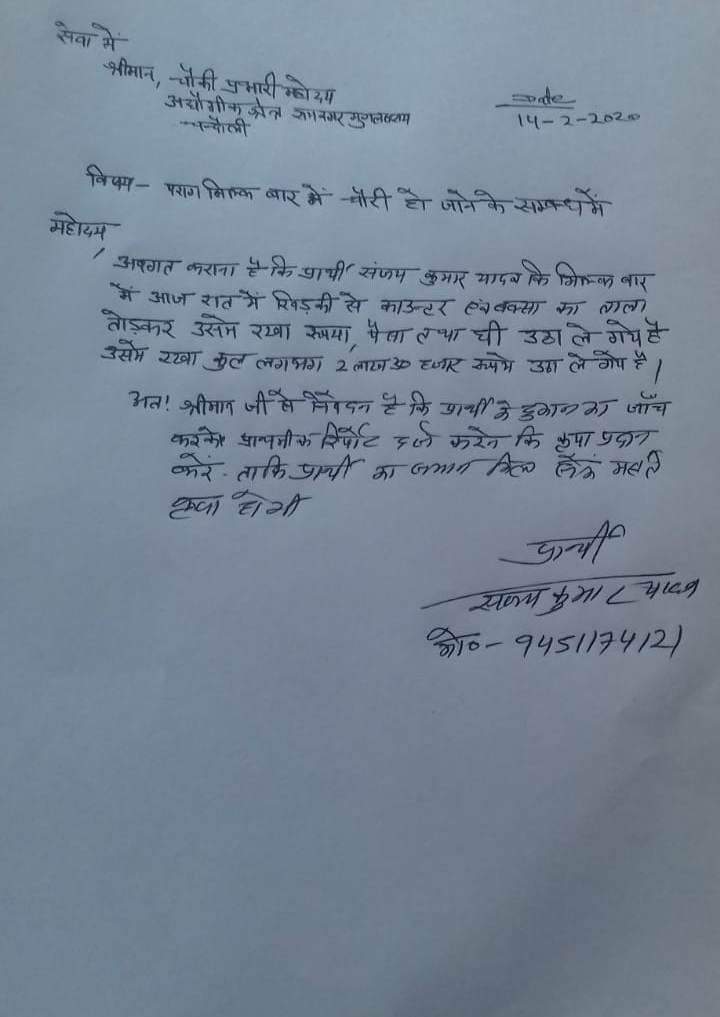 सेवा में
श्रीमान, चौकी प्रभारी महोदय
औद्योगिक क्षेत्र रामनगर मुगलसराय
चन्दौली
Date
14-2-2020
विषय - पराग मिल्क बार में चोरी हो जाने के सम्बन्ध में
महोदय,
अवगत कराना है कि प्रार्थी संजय कुमार यादव कि मिल्क बार
में आज रात में खिड़की से काउन्टर एवं बक्सा का ताला
तोड़कर उसमें रखा रूपया, पैसा तथा घी उठा ले गये है
उसमें रखा कुल लगभग 2 लाख 30 हजार रूपये उठा ले गये है।
अतः श्रीमान जी से निवेदन है कि प्रार्थी के दुकान का जाँच
करके प्राथमीक रिपोर्ट दर्ज करने कि कृपा प्रदान
करें. ताकि प्रार्थी का मिल सके महति
कृपा होगी
प्रार्थी
संजय कुमार यादव
मो०- 9451174121